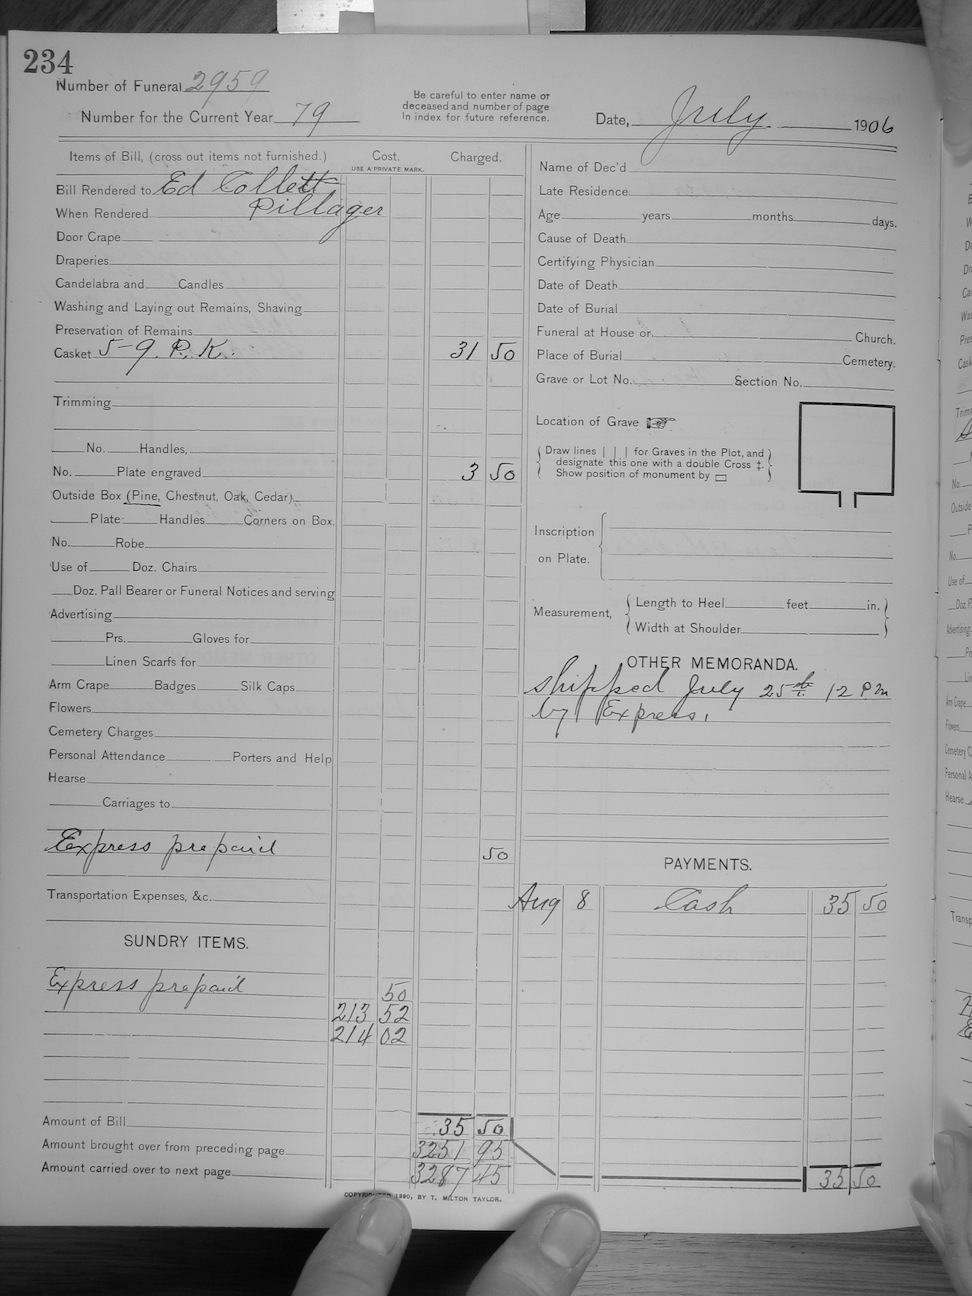 234
Number of Funeral 2959
Number for the Current Year 79
Be careful to enter name of
deceased and number of page
in index for future reference.
Date, July 1906
Items of Bill, (cross out items not furnished.) Cost. Charged.
USE A PRIVATE MARK.
Bill Rendered to Ed Collett
When Rendered Pillager
Door Crape
Draperies
Candelabra and Candles
Washing and Laying out Remains, Shaving
Preservation of Remains
Casket 5-9 P.K. 31 50
Trimming
No. Handles,
No. Plate engraved 3 50
Outside Box (Pine, Chestnut, Oak, Cedar)
Plate Handles Corners on Box.
No. Robe
Use of Doz. Chairs
Doz. Pall Bearer or Funeral Notices and serving
Advertising
Prs. Gloves for
Linen Scarfs for
Arm Crape Badges Silk Caps
Flowers
Cemetery Charges
Personal Attendance Porters and Help
Hearse
Carriages to
Express prepaid 50
Transportation Expenses, &c.
SUNDRY ITEMS.
Express prepaid 50
213 52
214 02
Amount of Bill 35 50
Amount brought over from preceding page 3251 95
Amount carried over to next page 3287 45
Name of Dec'd
Late Residence
Age years months days.
Cause of Death
Certifying Physician
Date of Death
Date of Burial
Funeral at House or Church.
Place of Burial Cemetery.
Grave or Lot No. Section No.
Location of Grave
Draw lines | | | for Graves in the Plot, and
designate this one with a double Cross ‡.
Show position of monument by ▭
Inscription
on Plate.
Measurement, Length to Heel feet in.
Width at Shoulder
OTHER MEMORANDA.
Shipped July 25th 12 PM
by Express.
PAYMENTS.
Aug 8 Cash 35 50
35 50
COPYRIGHTED 1890, BY T. MILTON TAYLOR.